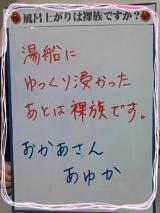 風呂上がりは裸族ですか?
湯船に
ゆっくり浸かった
あとは裸族です。
おかあさん
あゆか